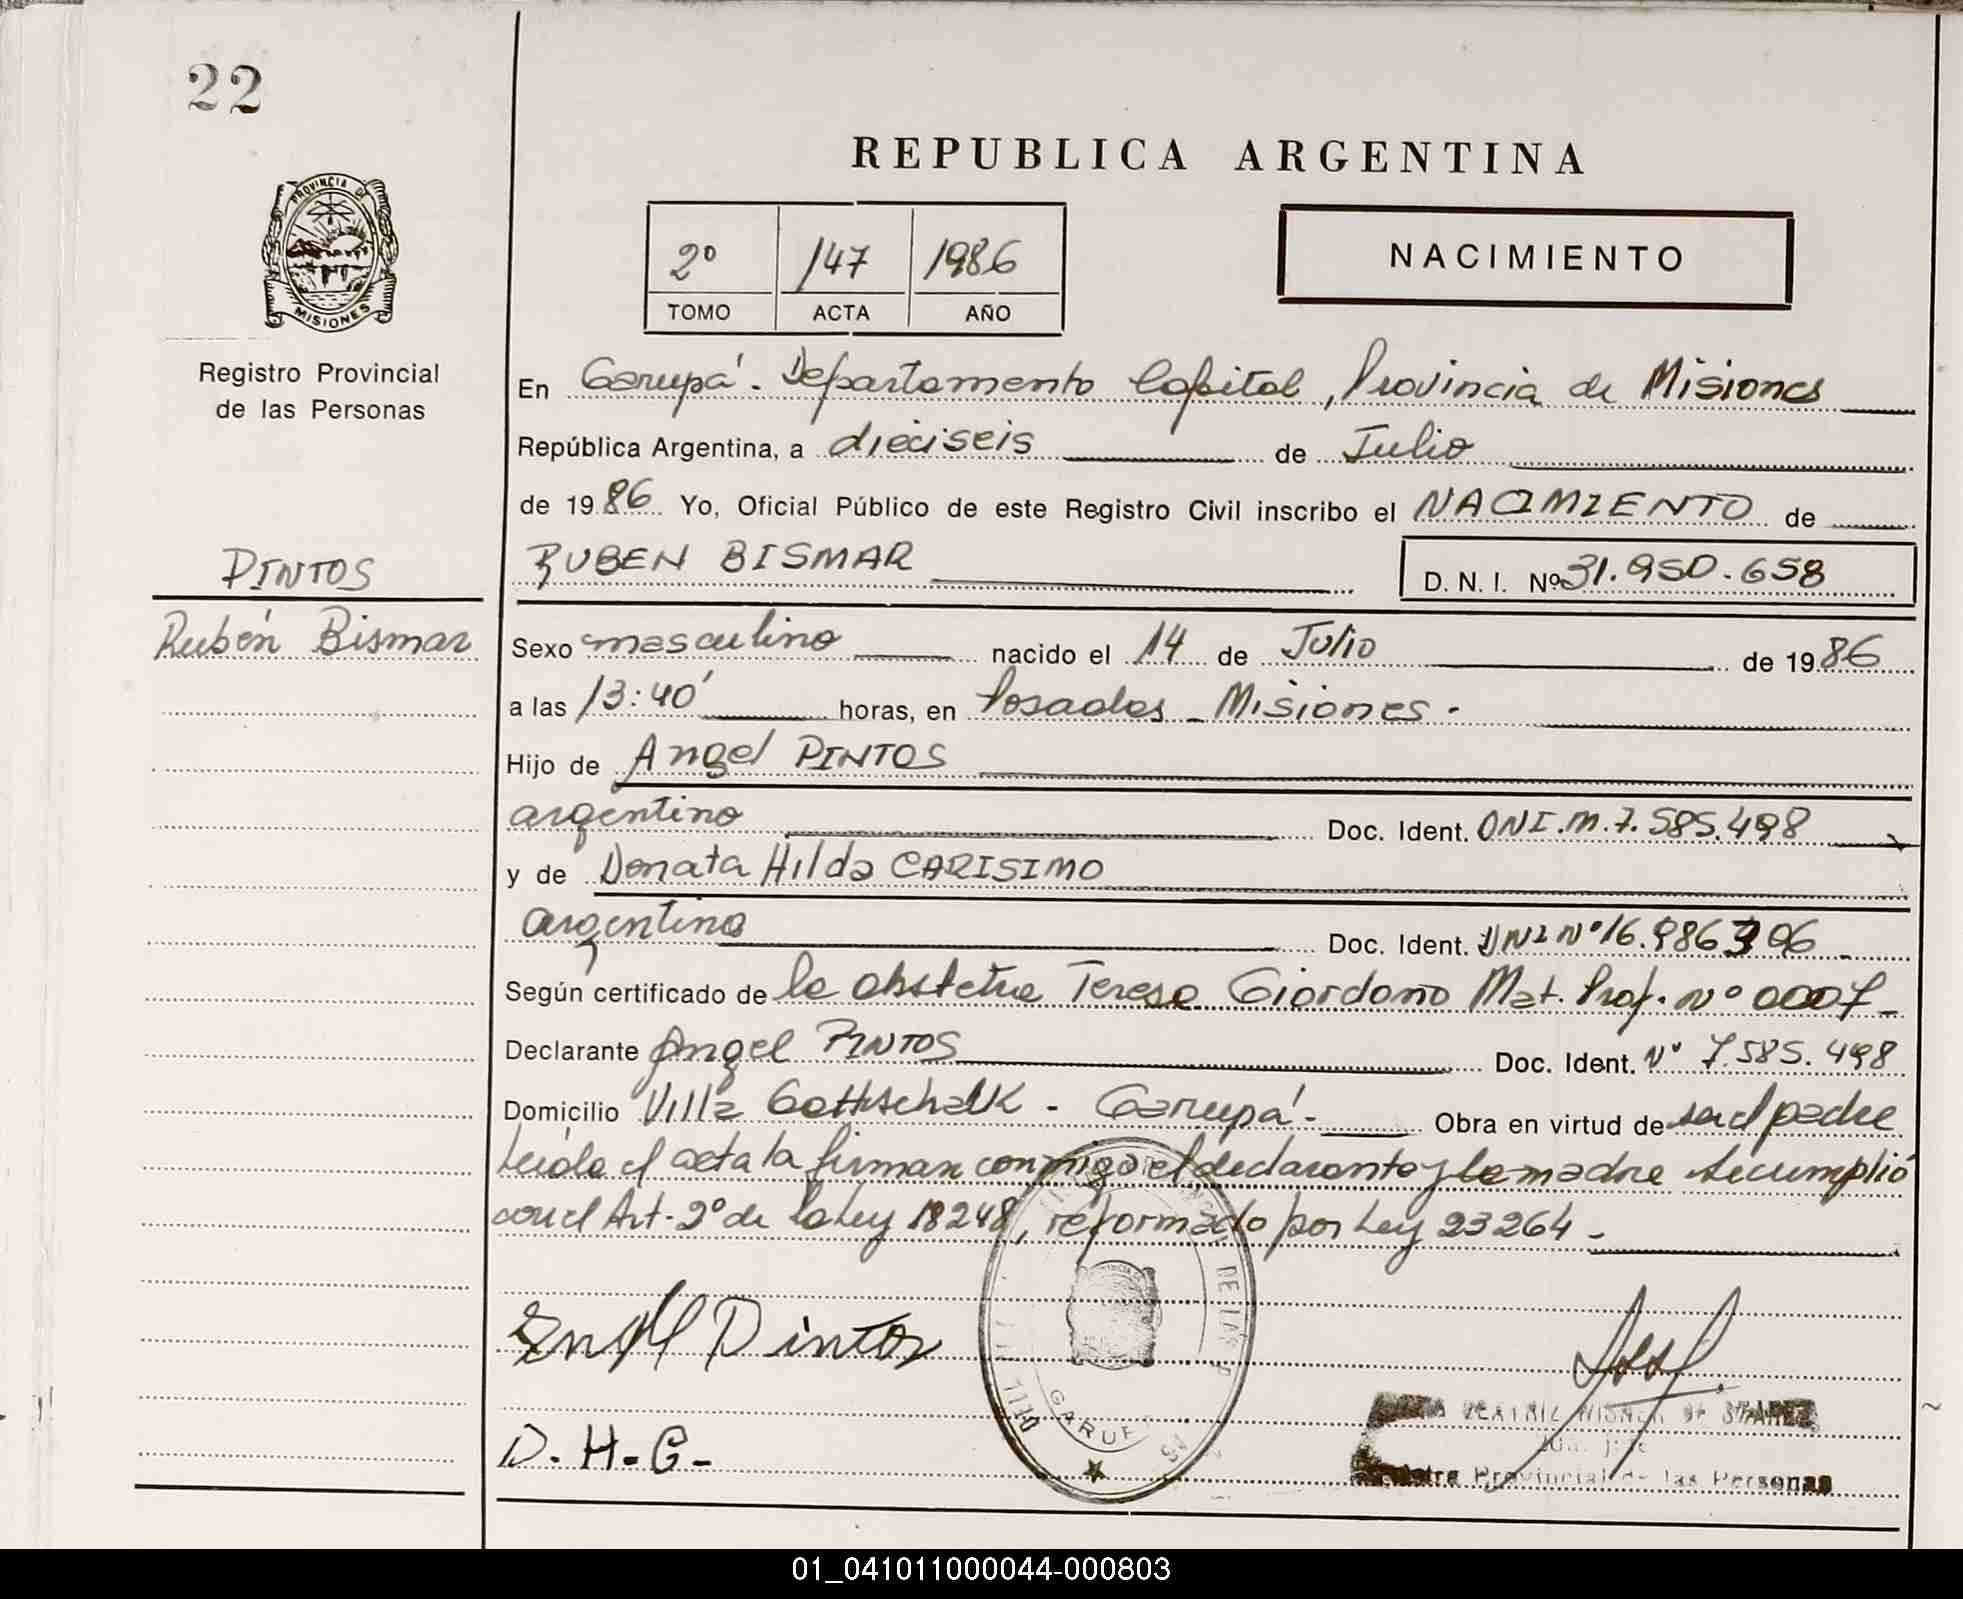 22
REPUBLICA ARGENTINA
PROVINCIA DE
MISIONES
2º 147 1986
TOMO ACTA AÑO
NACIMIENTO
Registro Provincial
de las Personas
En Garupá. Departamento Capital, Provincia de Misiones
República Argentina, a dieciseis de Julio
de 1986 Yo, Oficial Público de este Registro Civil inscribo el NACIMIENTO de
RUBEN BISMAR D.N.I. Nº 31.950.658
PINTOS
Rubén Bismar
Sexo masculino nacido el 14 de Julio de 1986
a las 13:40' horas, en Posadas - Misiones.
Hijo de Angel PINTOS
argentino Doc. Ident. DNI.M.7.585.498
y de Donata Hilda CARISIMO
argentina Doc. Ident. DNI Nº 16.986306
Según certificado de la obstetra Teresa Giordano Mat. Prof. Nº 0007-
Declarante Angel PINTOS Doc. Ident. Nº 7.585.498
Domicilio Villa Gottschalk - Garupá - Obra en virtud de ser el padre
Leida el acta la firman conmigo el declarante y la madre se cumplió
con el Art. 2º de la Ley 18248, reformado por Ley 23264 -
Angel Pintos
D.H.C.-
DE LAS P
GARUP
BEATRIZ DE SUAREZ
Provincial de las Personas
01_041011000044-000803